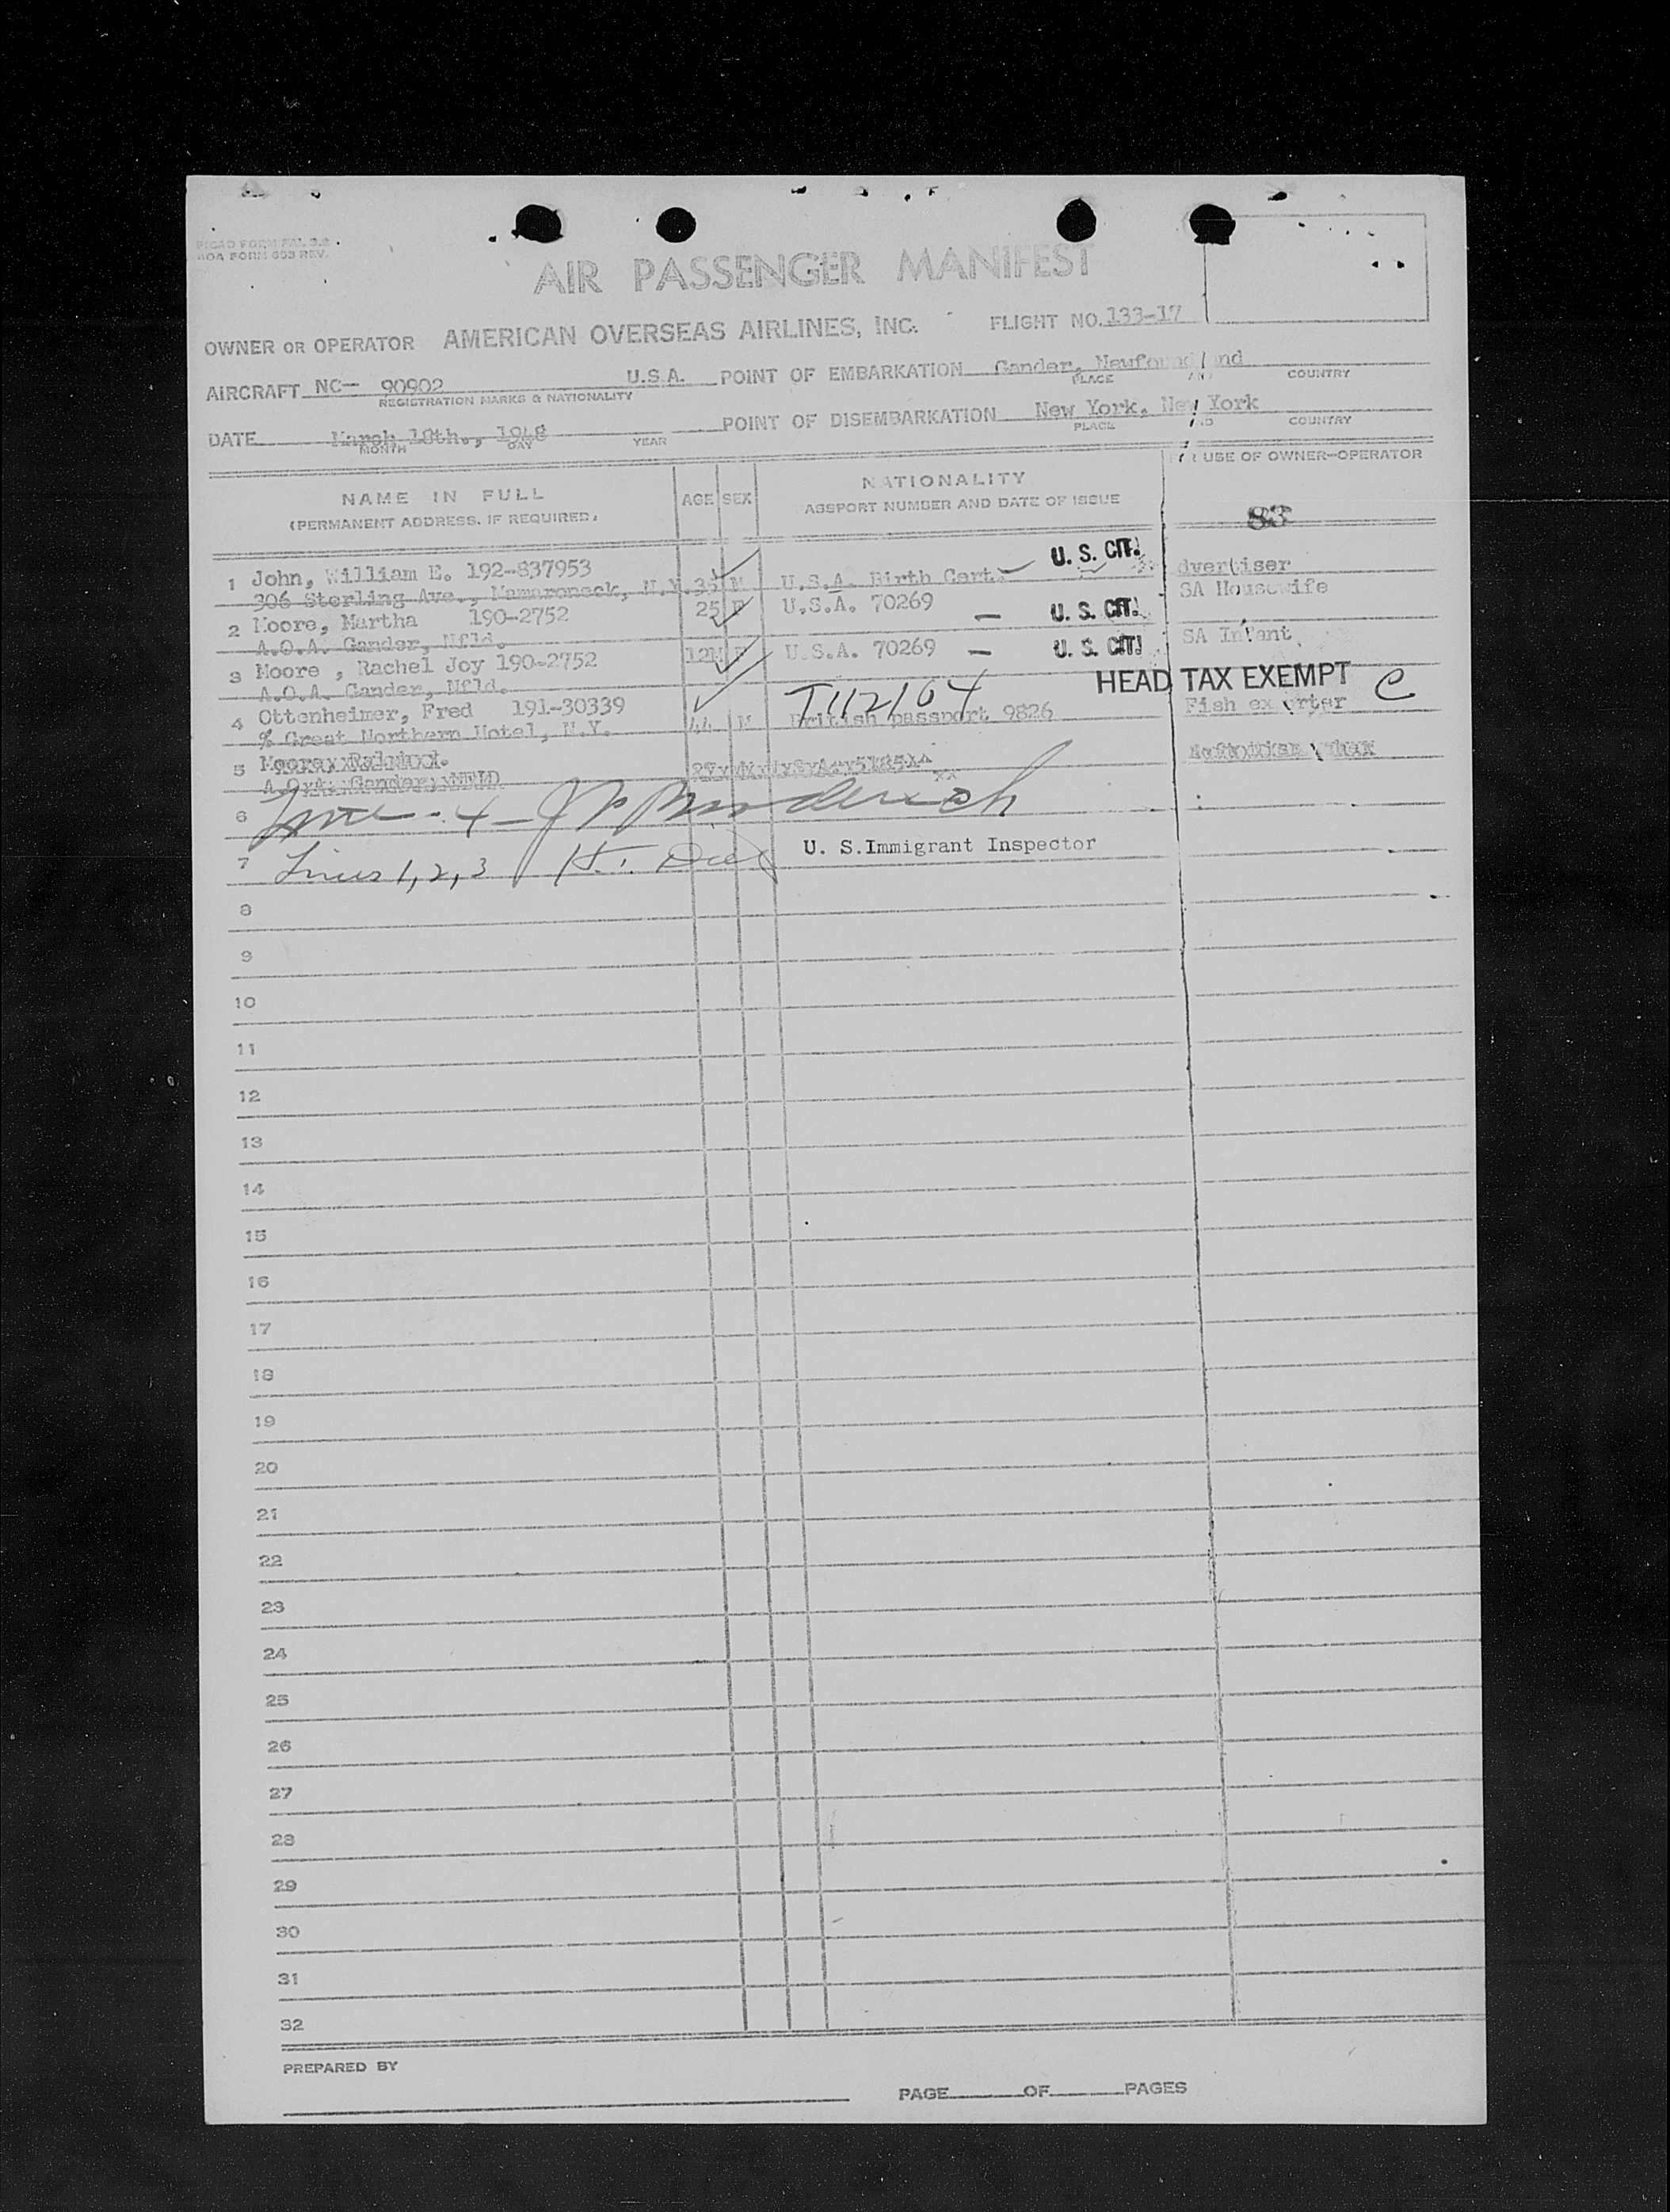 AIR PASSENGER MANIFEST
OWNER OR OPERATOR AMERICAN OVERSEAS AIRLINES, INC. FLIGHT NO. 133-17
AIRCRAFT NC— 90902 U.S.A. POINT OF EMBARKATION Gander, Newfoundland
REGISTRATION MARKS & NATIONALITY PLACE AND COUNTRY
DATE March 18th., 1948 POINT OF DISEMBARKATION New York, New York
MONTH DAY YEAR PLACE AND COUNTRY
FOR USE OF OWNER-OPERATOR
NAME IN FULL AGE SEX NATIONALITY
(PERMANENT ADDRESS, IF REQUIRED) ASSPORT NUMBER AND DATE OF ISSUE
83
1 John, William E. 192-837953 U. S. CIT. dvertiser
306 Sterling Ave., Mamaroneck, N.Y. 35 M U.S.A. Birth Cert.
2 Moore, Martha 190-2752 25 F U.S.A. 70269 — U. S. CIT. SA Housewife
A.O.A. Gander, Nfld.
3 Moore , Rachel Joy 190-2752 12M F U.S.A. 70269 — U. S. CIT. SA Infant
A.O.A. Gander, Nfld.
HEAD TAX EXEMPT C
T112164
4 Ottenheimer, Fred 191-30339 44 M British passport 9826 Fish exporter
% Great Northern Hotel, N.Y.
5
6
U. S.Immigrant Inspector
7 Lines 1,2,3
8
9
10
11
12
13
14
15
16
17
18
19
20
21
22
23
24
25
26
27
28
29
30
31
32
PREPARED BY
PAGE OF PAGES